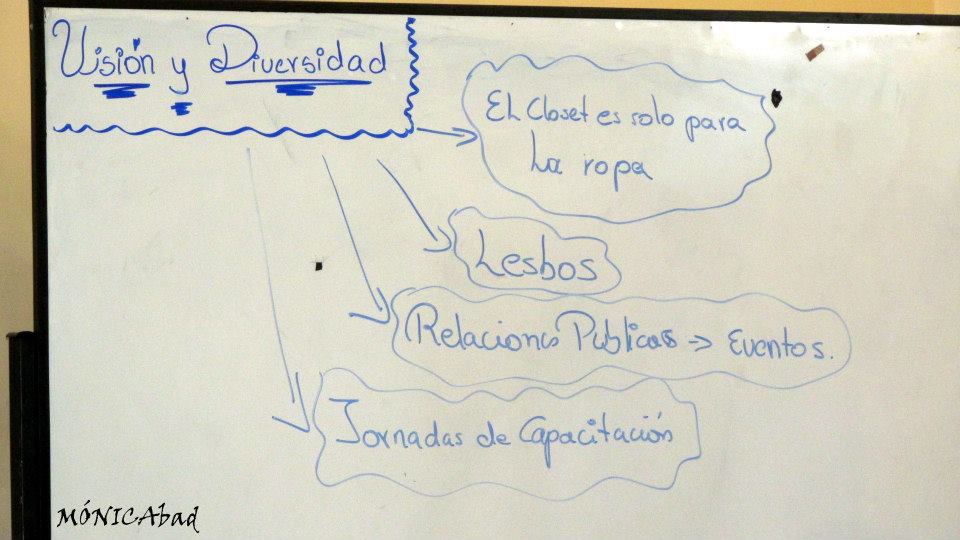 Visión y Diversidad
EL Closet es solo para
La ropa
Lesbos
Relaciones Públicas → Eventos.
Jornadas de Capacitación
MÓNICAbad